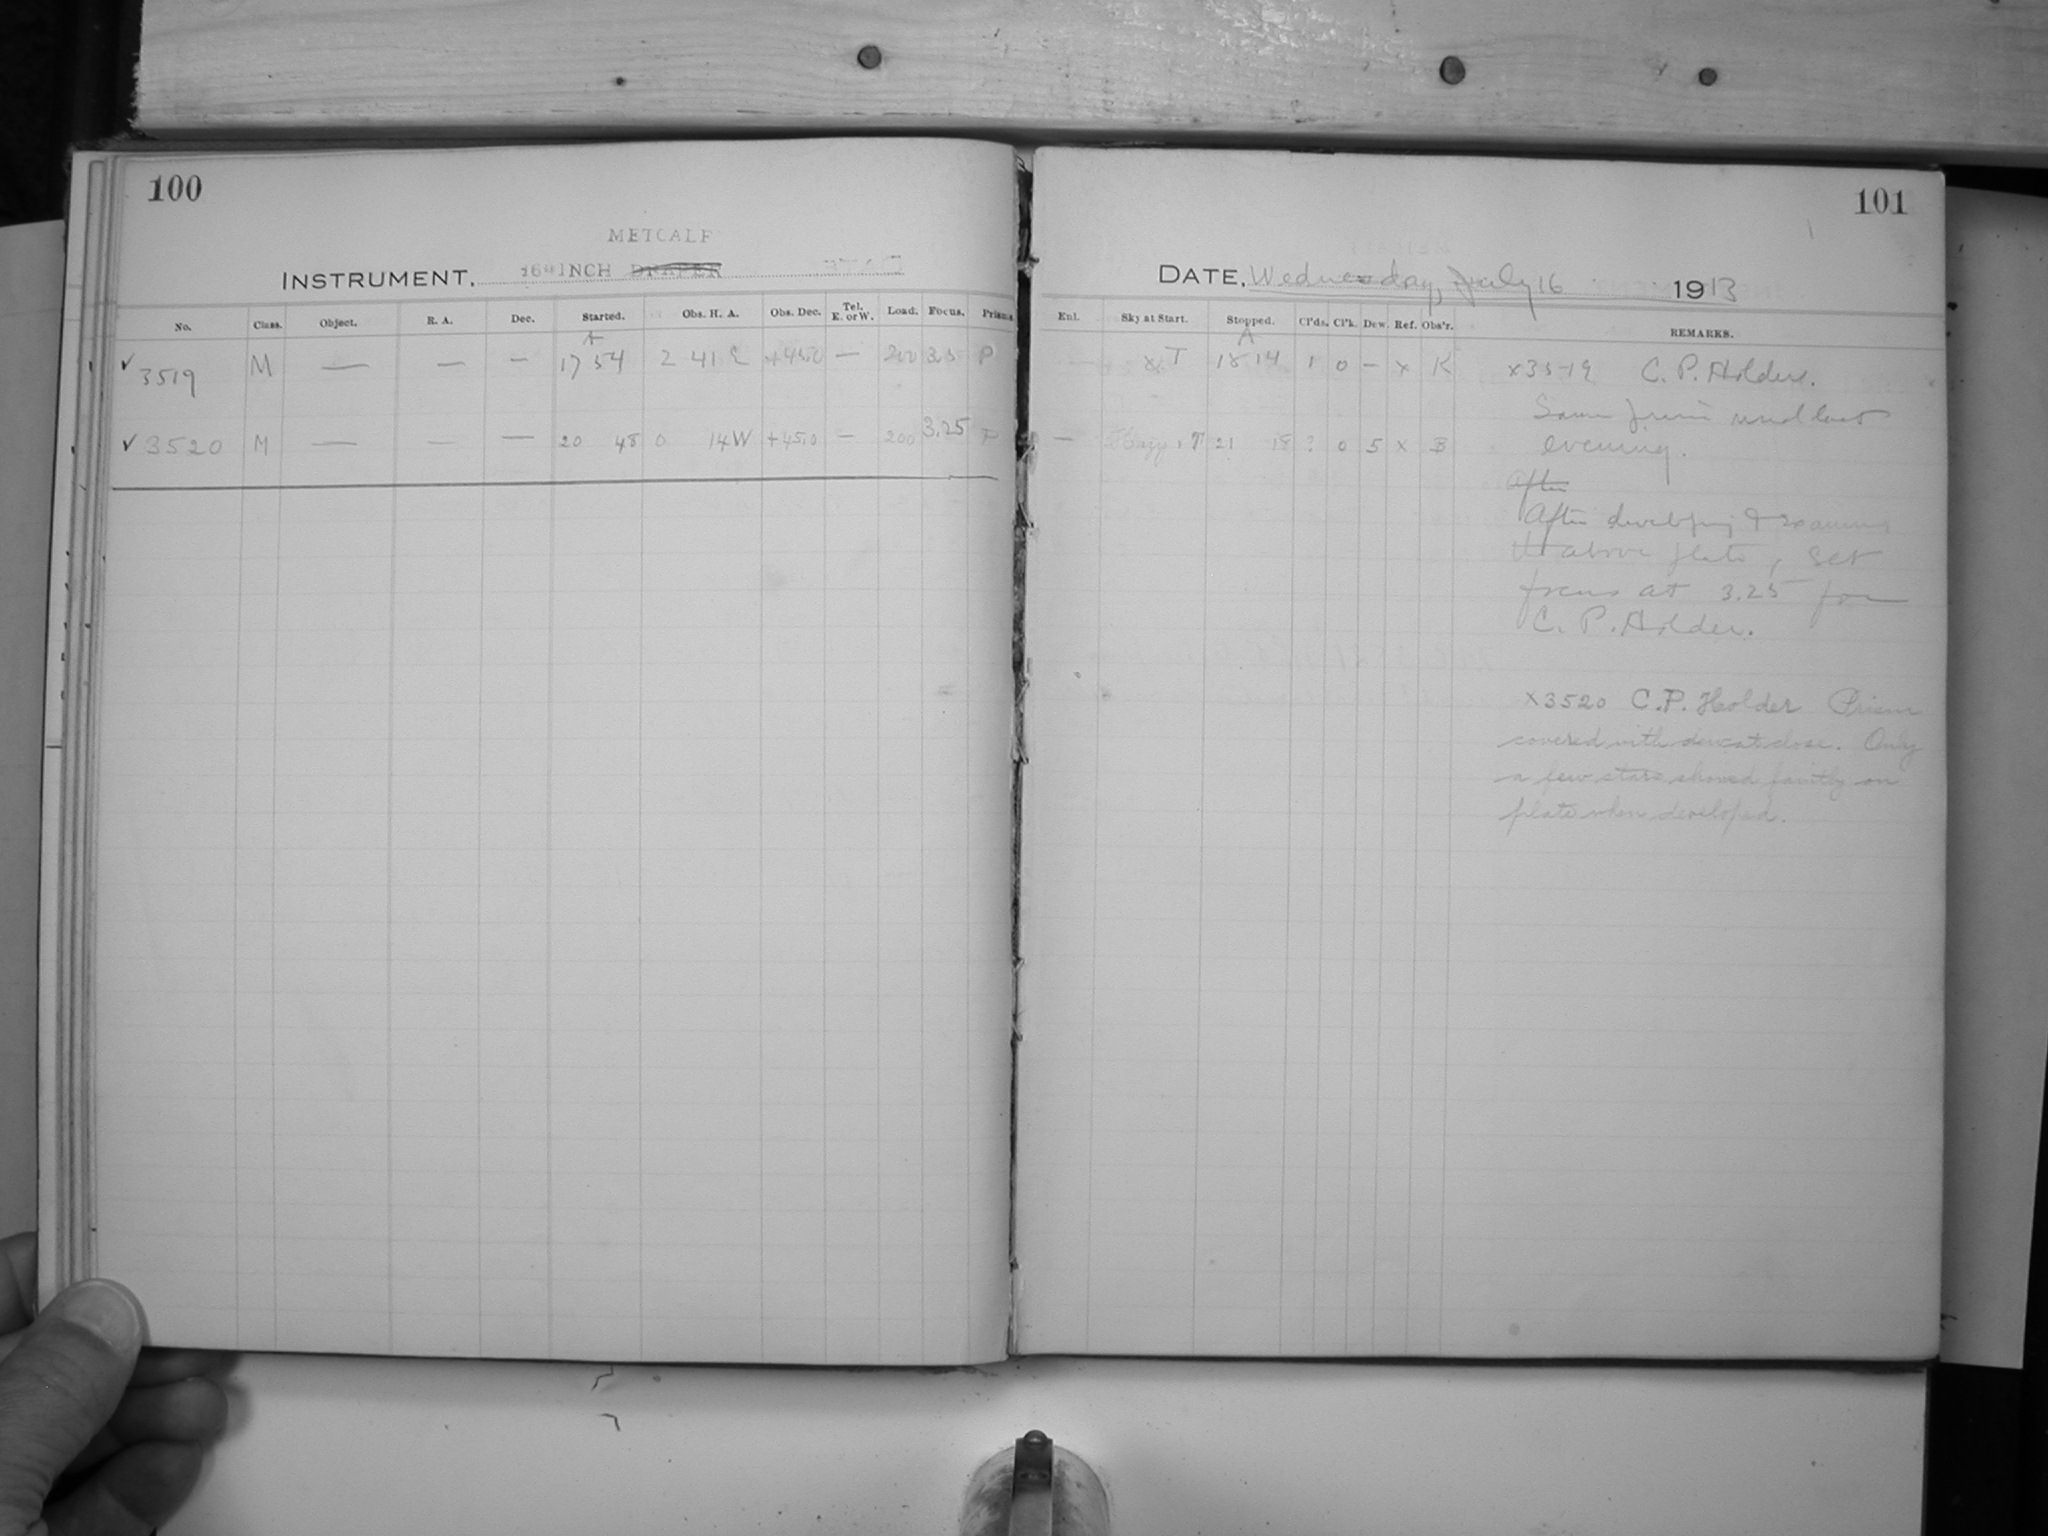 100
METCALF
INSTRUMENT. 16 INCH DRAPER
No. Class. Object. R. A. Dec. Started. Obs. H. A. Obs. Dec. Tel. E. or W. Load. Focus. Prism
A
✓ 3519 M — — — 17 54 2 41 E +45.0 — 200 3.5 P
✓ 3520 M — — — 20 48 0 14 W +45.0 — 200 3.25 P
101
DATE, Wednesday, July 16 1913
Enl. Sky at Start. Stopped. Cl'ds. Cl'k. Dew. Ref. Obs'r. REMARKS.
A
x T 18 14 1 0 — x K x3519 C. P. Holder.
Same prism used last
— Hazy, T 21 18 ? 0 5 x B evening.
After
After developing &
the above plate, set
focus at 3.25 for
C. P. Holder.
x3520 C.P. Holder Prism
covered with dew at close. Only
a few stars showed faintly on
plate when developed.